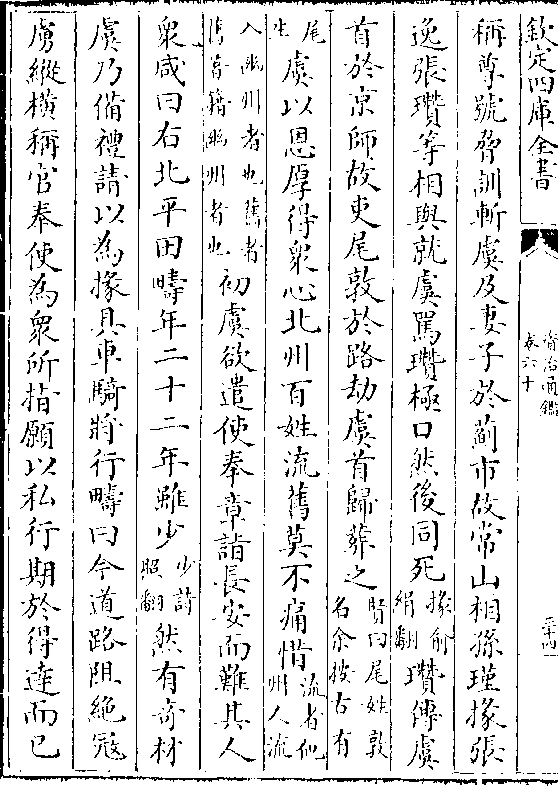 欽定四庫全書
資治通鑑
卷六十
三十四
稱尊號脅訓斬虞及妻子於薊市故常山相孫瑾掾張
逸張瓚等相與就虞罵瓚極口然後同死掾俞絹翻瓚傳虞
首於京師故吏尾敦於路劫虞首歸葬之賢曰尾姓敦名余按古有
尾生虞以恩厚得衆心北州百姓流舊莫不痛惜流者他州人流
入幽州者也舊者舊著籍幽州者也初虞欲遣使奉章詣長安而難其人
衆咸曰右北平田疇年二十二年雖少少詩照翻然有奇材
虞乃備禮請以為掾具車騎將行疇曰今道路阻絶冦
虜縱橫稱官奉使為衆所指願以私行期於得達而已